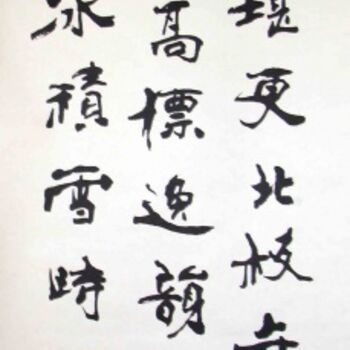 堪更北枝
高標逸韻
冰積雪時